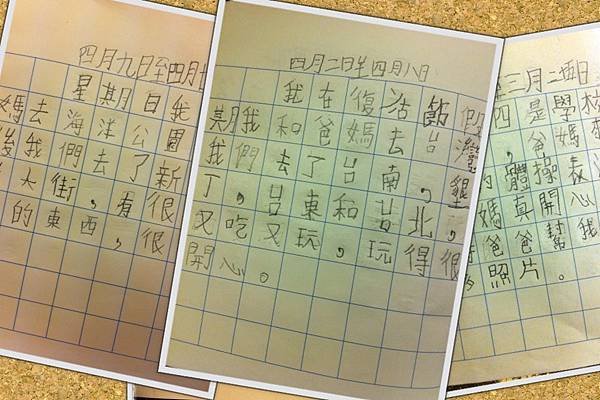 四月九日至四月十
星期日我
媽去海洋公園
後我們去了新
大街，看很
的東西，很
四月二日至四月八日
我在復活節假
期我和爸媽去台灣
我們去了台南，墾
丁，台東和台北，
又吃又玩，玩得很
開心。
三月二日
四是學校
，爸媽
體操表
媽真開心
爸爸幫我
照片。